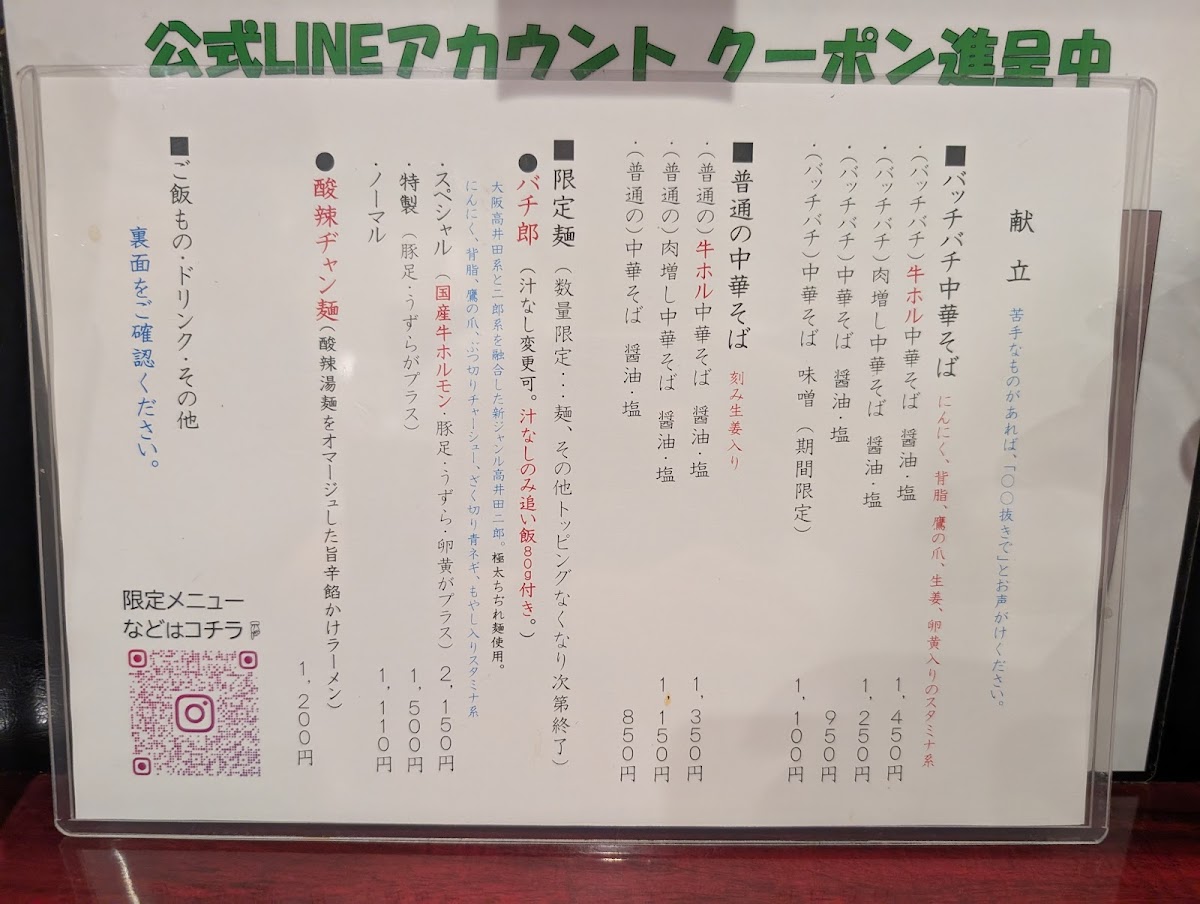 公式LINEアカウント クーポン進呈中
献立 苦手なものがあれば、「〇〇抜きで」とお声がけください。
■バッチバチ中華そば にんにく、背脂、鷹の爪、生姜、卵黄入りのスタミナ系
・(バッチバチ)牛ホル中華そば 醤油・塩 1,450円
・(バッチバチ)肉増し中華そば 醤油・塩 1,250円
・(バッチバチ)中華そば 醤油・塩 950円
・(バッチバチ)中華そば 味噌 (期間限定) 1,100円
■普通の中華そば 刻み生姜入り
・(普通の)牛ホル中華そば 醤油・塩 1,350円
・(普通の)肉増し中華そば 醤油・塩 1,150円
・(普通の)中華そば 醤油・塩 850円
■限定麺 (数量限定...麺、その他トッピングなくなり次第終了)
●バチ郎 (汁なし変更可。汁なしのみ追い飯80g付き。)
大阪高井田系と二郎系を融合した新ジャンル高井田二郎。極太ちぢれ麺使用。
にんにく、背脂、鷹の爪、ぶつ切りチャーシュー、ざく切り青ネギ、もやし入りスタミナ系
・スペシャル (国産牛ホルモン・豚足・うずら・卵黄がプラス) 2,150円
・特製 (豚足・うずらがプラス) 1,500円
・ノーマル 1,110円
●酸辣ヂャン麺(酸辣湯麺をオマージュした旨辛餡かけラーメン) 1,200円
■ご飯もの・ドリンク・その他
裏面をご確認ください。
限定メニュー
などはコチラ